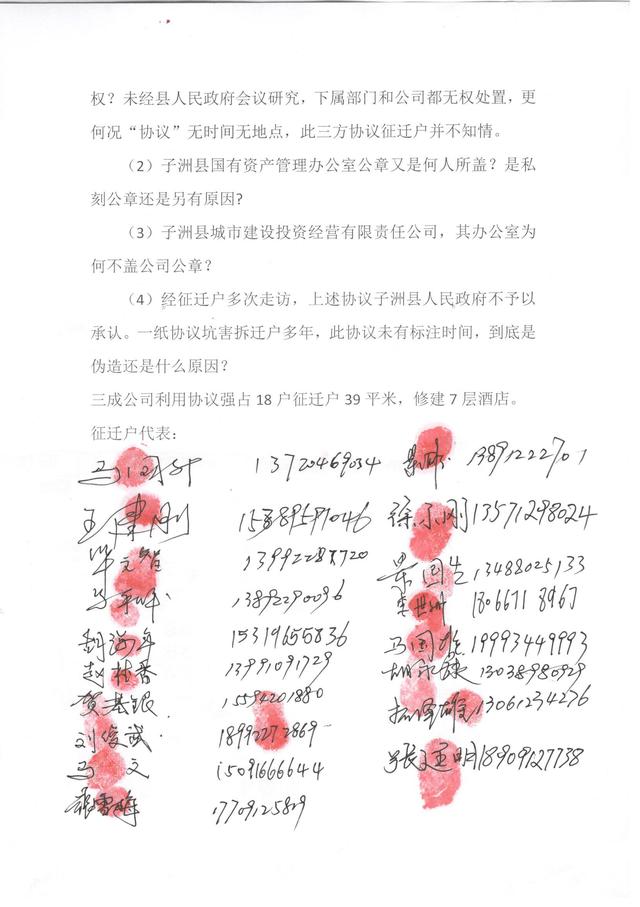 权？未经县人民政府会议研究，下属部门和公司都无权处置，更
何况“协议”无时间无地点，此三方协议征迁户并不知情。
（2）子洲县国有资产管理办公室公章又是何人所盖？是私
刻公章还是另有原因?
（3）子洲县城市建设投资经营有限责任公司，其办公室为
何不盖公司公章？
（4）经征迁户多次走访，上述协议子洲县人民政府不予以
承认。一纸协议坑害拆迁户多年，此协议未有标注时间，到底是
伪造还是什么原因？
三成公司利用协议强占 18 户征迁户 39 平米，修建 7 层酒店。
征迁户代表：
13720469034 13891222701
13571298024
13488025133
13892290096
15319655836 马国 19993449993
13991091729 13038980929
贺基银 13061234276
刘俊斌 18992272869
马文 15091666644 张 明 18909127738
17709125819